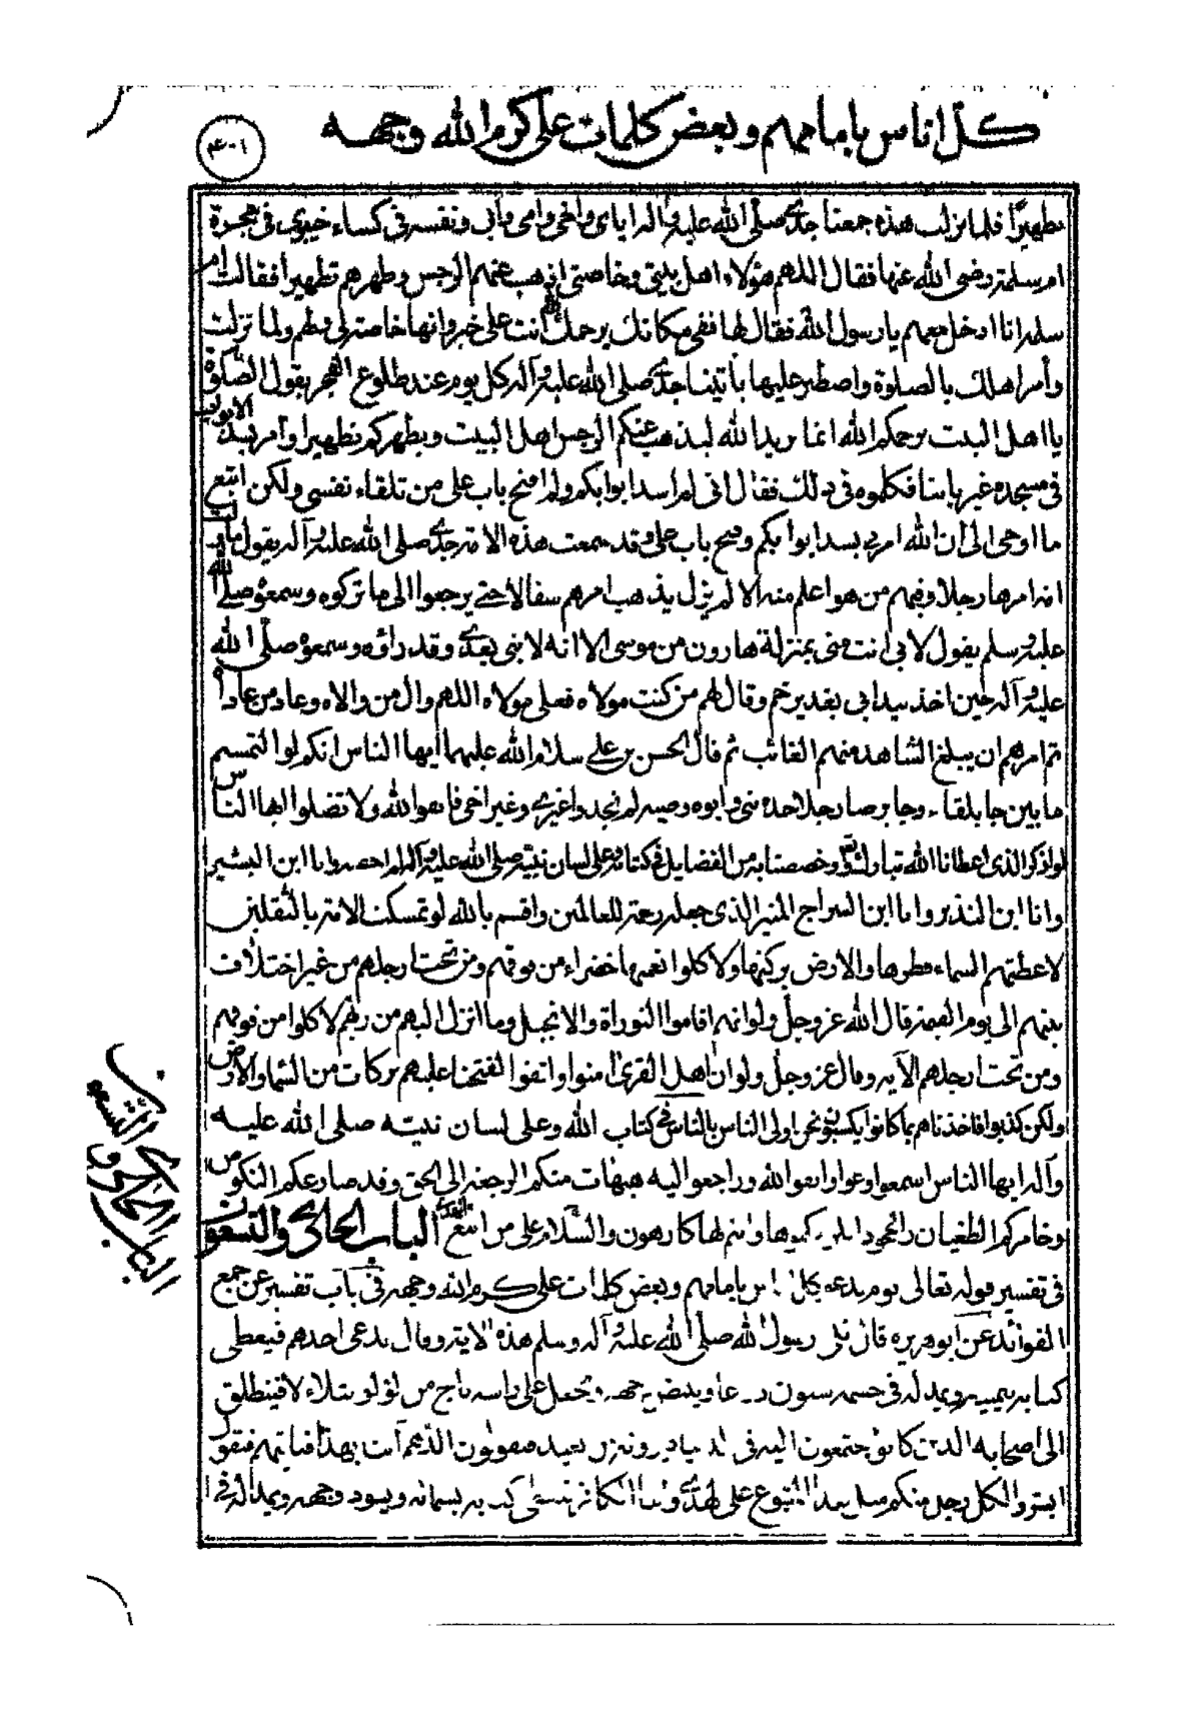 كل اناس بامامهم وبعض كلمات على كرم الله وجهه
تطهيرًا فلما نزلت هذه جمعنا جدى صلى الله عليه وآله اياى واخى وامى وابى ونفسه فى كساء خيبرى فى حجرة
ام سلمة رضى الله عنها فقال اللهم هؤلاء اهل بيتى وخاصتى اذهب عنهم الرجس وطهرهم تطهيرا فقالت ام
سلمه انا ادخل معهم يا رسول الله فقال لها قفى مكانك يرحمك الله انت على خير وانها خاصة لى ولهم ولما نزلت
وأمر اهلك بالصلوة واصطبر عليها يأتينا جدى صلى الله عليه وآله كل يوم عند طلوع الفجر يقول الصلوة
يا اهل البيت يرحمكم الله انما يريد الله ليذهب عنكم الرجس اهل البيت ويطهركم تطهيرا وأمر بسد الابواب
فى مسجده غير بابنا فكلموه فى ذلك فقال انى لم اسد ابوابكم ولم افتح باب على من تلقاء نفسى ولكن اتبع
ما اوحى الى ان الله امرنى بسد ابوابكم وفتح باب على وقد سمعت هذه الامة جدى صلى الله عليه وآله يقول ما ولت
امة امرها رجلا وفيهم من هو اعلم منه الا لم يزل يذهب امرهم سفالا حتى يرجعوا الى ما تركوه وسمعوه صلى الله
عليه وسلم يقول لابى انت منى بمنزلة هارون من موسى الا انه لا نبى بعدى وقد رأوه وسمعوه صلى الله
عليه وآله حين اخذ بيد ابى بغدير خم وقال لهم من كنت مولاه فعلى مولاه اللهم وال من والاه وعاد من عاداه
ثم امرهم ان يبلغ الشاهد منهم الغائب ثم قال الحسن بن على سلام الله عليهما ايها الناس انكم لو التمستم
ما بين جابلقاء وجابرصا رجلا جده نبى وابوه وصيه لم تجدوا غيرى وغير اخى فاتقوا الله ولا تضلوا ايها الناس
لو اذكر الذى اعطانا الله تبارك وتعالى وخصصنا به من الفضايل فى كتابه وعلى لسان نبيه صلى الله عليه وآله لم احصه وانا ابن البشير
وانا ابن النذير وانا ابن السراج المنير الذى جعله رحمة للعالمين واقسم بالله لو تمسكت الامة بالثقلين
لاعطتهم السماء قطرها والارض بركتها ولاكلوا نعمتها خضراء من فوقهم ومن تحت ارجلهم من غير اختلاف
بينهم الى يوم القيمة قال الله عز وجل ولو انهم اقاموا التوراة والانجيل وما انزل اليهم من ربهم لاكلوا من فوقهم
ومن تحت ارجلهم الآيه وقال عز وجل ولو ان اهل القرى امنوا واتقوا لفتحنا عليهم بركات من السماء والارض
ولكن كذبوا فاخذناهم بما كانوا يكسبون نحن اولى الناس بالناس فى كتاب الله وعلى لسان نبيه صلى الله عليه
وآله ايها الناس اسمعوا وعوا واتقوا الله وراجعوا اليه هيهات منكم الرجعة الى الحق وقد صارعكم النكوص
وخامركم الطغيان والجحود انلزمكموها وانتم لها كارهون والسلام على من اتبع الهدى الباب الحادى والتسعون
فى تفسير قوله تعالى يوم ندعو كل اناس بامامهم وبعض كلمات على كرم الله وجهه فى باب تفسيره عن جمع
الفوائد عن ابو هريره قال تلى رسول الله صلى الله عليه وآله وسلم هذه الاية وقال يدعى احدهم فيعطى
كتابه بيمينه ويمد له فى جسمه ستون ذراعا ويبيض وجهه ويجعل على راسه تاج من لؤلؤ يتلاءلا فينطلق
الى اصحابه الذين كانوا يجتمعون اليه فى الدنيا ويرونه من بعيد فيقولون اللهم آت بهذا فياتيهم فيقول
ابشروا لكل رجل منكم مثل هذا المتبوع على الهدى واما الكافر يعطى كتابه بشماله ويسود وجهه ويمد له فى
الباب الحادى والتسعون